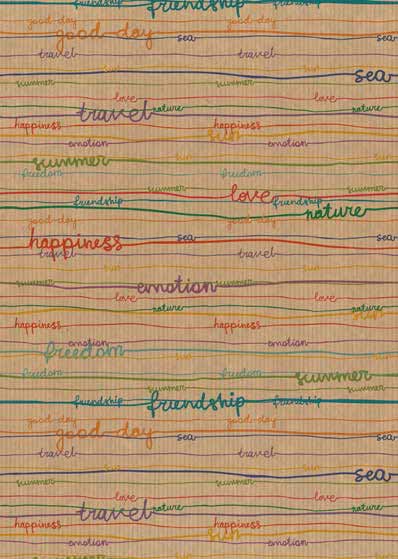 friendship friendship friendship
good day good day
good day sea sea
travel travel
sun sun
sea
summer summer
love love
travel nature nature
happiness happiness
sun
emotion emotion
summer sun sun
freedom freedom
summer summer
love
friendship friendship
nature
good day good day
happiness sea sea
travel travel
sun sun
emotion
summer summer
love love
nature nature
sun
happiness happiness
emotion emotion
freedom sun sun
freedom freedom
summer
summer summer
friendship friendship friendship
good day good day
good day sea sea
travel travel
sun sun
sea
summer summer
love love
travel nature nature
happiness happiness
sun
emotion emotion
summer